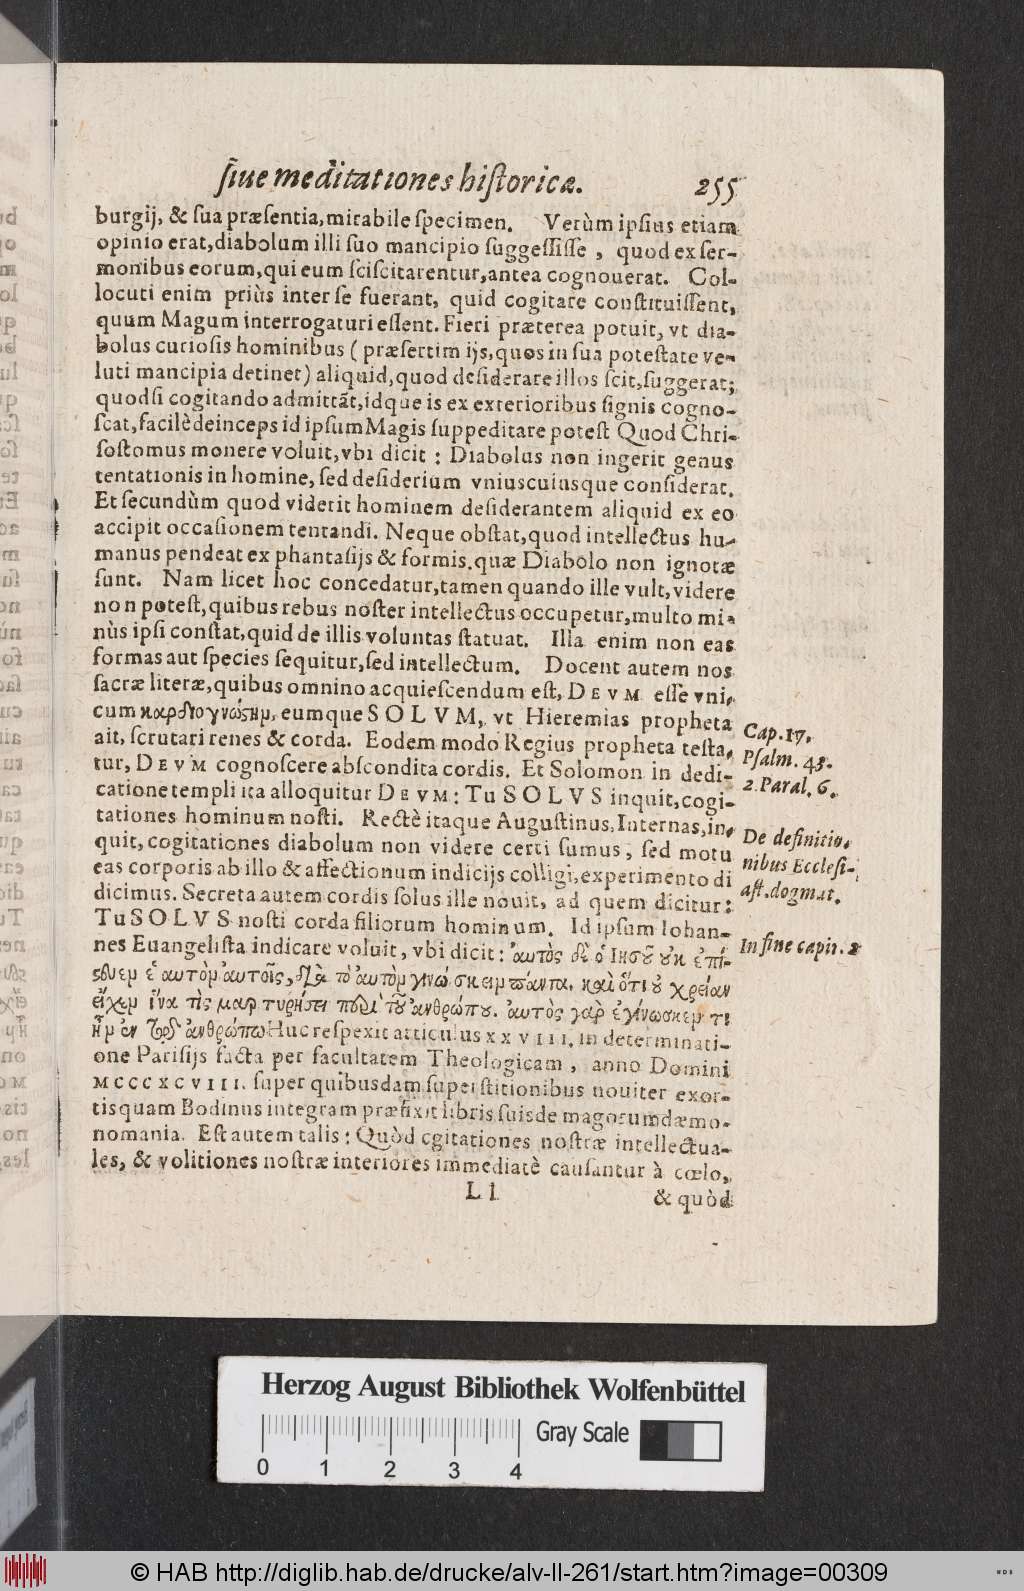 ſiue meditationes hiſtoricæ. 255
burgij, & ſua præſentia, mirabile ſpecimen. Verùm ipſius etiam
opinio erat, diabolum illi ſuo mancipio ſuggeſſiſſe, quod ex ſer-
monibus eorum, qui eum ſciſcitarentur, antea cognouerat. Col-
locuti enim priùs inter ſe fuerant, quid cogitare conſtituiſſent,
quum Magum interrogaturi eſſent. Fieri præterea potuit, vt dia-
bolus curioſis hominibus (præſertim ijs, quos in ſua poteſtate ve-
luti mancipia detinet) aliquid, quod deſiderare illos ſcit, ſuggerat;
quodſi cogitando admittãt, idque is ex exterioribus ſignis cogno-
ſcat, facilè deinceps id ipſum Magis ſuppeditare poteſt Quod Chri-
ſoſtomus monere voluit, vbi dicit: Diabolus non ingerit genus
tentationis in homine, ſed deſiderium vniuscuiusque conſiderat.
Et ſecundùm quod viderit hominem deſiderantem aliquid ex eo
accipit occaſionem tentandi. Neque obſtat, quod intellectus hu-
manus pendeat ex phantaſijs & formis. quæ Diabolo non ignotæ
ſunt. Nam licet hoc concedatur, tamen quando ille vult, videre
non poteſt, quibus rebus noſter intellectus occupetur, multo mi-
nùs ipſi conſtat, quid de illis voluntas ſtatuat. Illa enim non eas
formas aut ſpecies ſequitur, ſed intellectum. Docent autem nos
ſacræ literæ, quibus omnino acquieſcendum eſt, DEVM eſſe vni-
cum καρδιογνώςην, eumque SOLVM, vt Hieremias propheta
ait, ſcrutari renes & corda. Eodem modo Regius propheta teſta-
tur, DEVM cognoſcere abſcondita cordis. Et Solomon in dedi-
catione templi ita alloquitur DEVM: Tu SOLVS inquit, cogi-
tationes hominum noſti. Rectè itaque Auguſtinus, Internas, in-
quit, cogitationes diabolum non videre certi ſumus, ſed motu
eas corporis ab illo & affectionum indicijs colligi, experimento di
dicimus. Secreta autem cordis ſolus ille nouit, ad quem dicitur:
Tu SOLVS noſti corda filiorum hominum. Id ipſum Iohan-
nes Euangeliſta indicare voluit, vbi dicit: ἀυτὸς δὲ ὁ Ιησοῦ ουκ ἐπί-
ςευεν ἑαυτὸν ἀυτοῖς, διὰ τὸ ἀυτὸν γινώσκειν πάντα, καὶ ὅτι ου χρείαν
εἶχεν ἵνα τὶς μαρτυρήσει περὶ τοῦ ἀνθρώπου. ἀυτὸς γὰρ ἐγίνωσκεν τι
ἦν ἐν τῷ ἀνθρώπω Huc reſpexit articulus XXVIII. in determinati-
one Pariſijs facta per facultatem Theologicam, anno Domini
MCCCXCVIII. ſuper quibusdam ſuperſtitionibus nouiter exor-
tis quam Bodinus integram præfixit libris ſuis de magorum dæmo-
nomania. Eſt autem talis: Quòd cgitationes noſtræ intellectua-
les, & volitiones noſtræ interiores immediatè cauſantur à cœlo,
Ll & quòd
Cap. 17.
Pſalm. 43.
2. Paral. 6.
De definitio-
nibus Eccleſi-
aſt. dogmat.
In fine capit. 2
Herzog August Bibliothek Wolfenbüttel
Gray Scale
0 1 2 3 4
© HAB http://diglib.hab.de/drucke/alv-ll-261/start.htm?image=00309